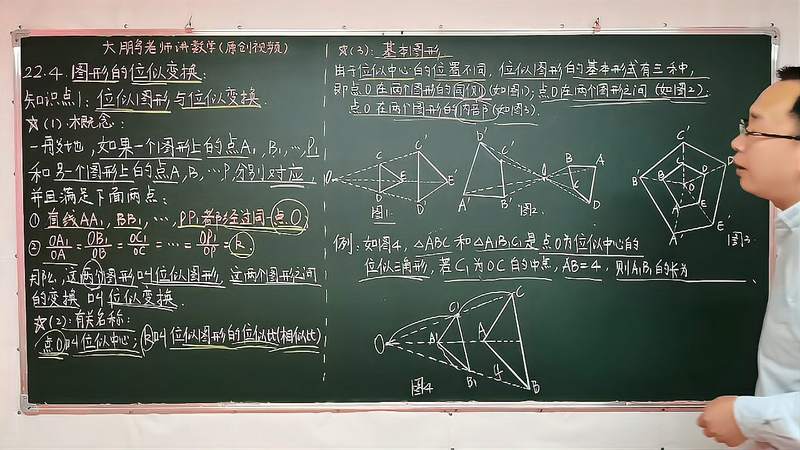 大鹏老师讲数学(原创视频)
22.4.图形的位似变换:
知识点1:位似图形与位似变换.
☆(1).概念:
一般地,如果一个图形上的点A₁,B₁,…,P₁
和另一个图形上的点A,B,…P分别对应,
并且满足下面两点:
①直线AA₁,BB₁,…,PP₁都经过同一点O
②OA₁/OA=OB₁/OB=OC₁/OC=…=OP₁/OP=k
那么,这两个图形叫位似图形,这两个图形之间
的变换叫位似变换.
☆(2):有关名称:
点O叫位似中心;k叫位似图形的位似比(相似比)
☆(3):基本图形
由于位似中心的位置不同,位似图形的基本形式有三种,
即点O在两个图形的同侧(如图1);点O在两个图形之间(如图2);
点O在两个图形的内部(如图3).
O C' C E E' D D'
图1
D' C' A' B' O B A C D
图2
C' B' B C D O A E A' E'
图3
例:如图4,△ABC和△A₁B₁C₁是点O为位似中心的
位似三角形,若C₁为OC的中点,AB=4,则A₁B₁的长为
O A₁ C₁ B₁ A C B 4
图4